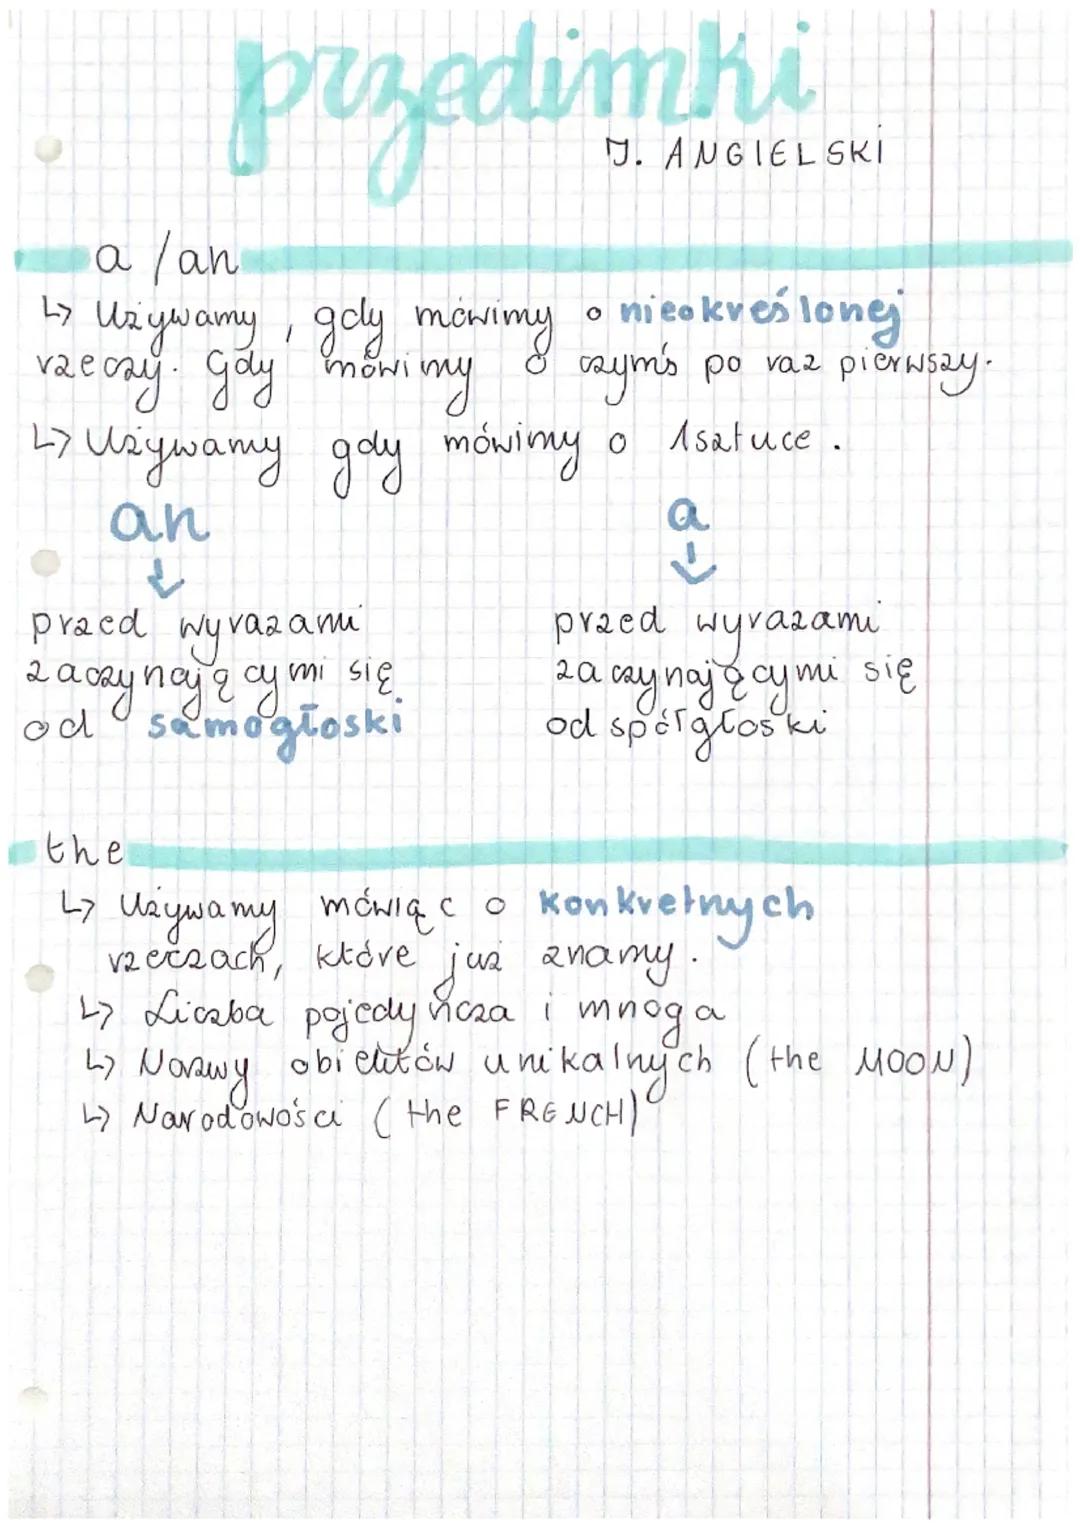 przedimki
J. ANGIELSKI
a / an
↳ Używamy, gdy mówimy o nieokreślonej
rzeczy. Gdy mówimy o czymś po raz pierwszy.
↳ Używamy gdy mówimy o 1 sztuce.
an a
↓ ↓
przed wyrazami przed wyrazami
zaczynającymi się zaczynającymi się
od samogłoski od spółgłoski
the
↳ Używamy mówiąc o konkretnych
rzeczach, które już znamy.
↳ Liczba pojedyńcza i mnoga
↳ Nazwy obiektów unikalnych (the MOON)
↳ Narodowości (the FRENCH)